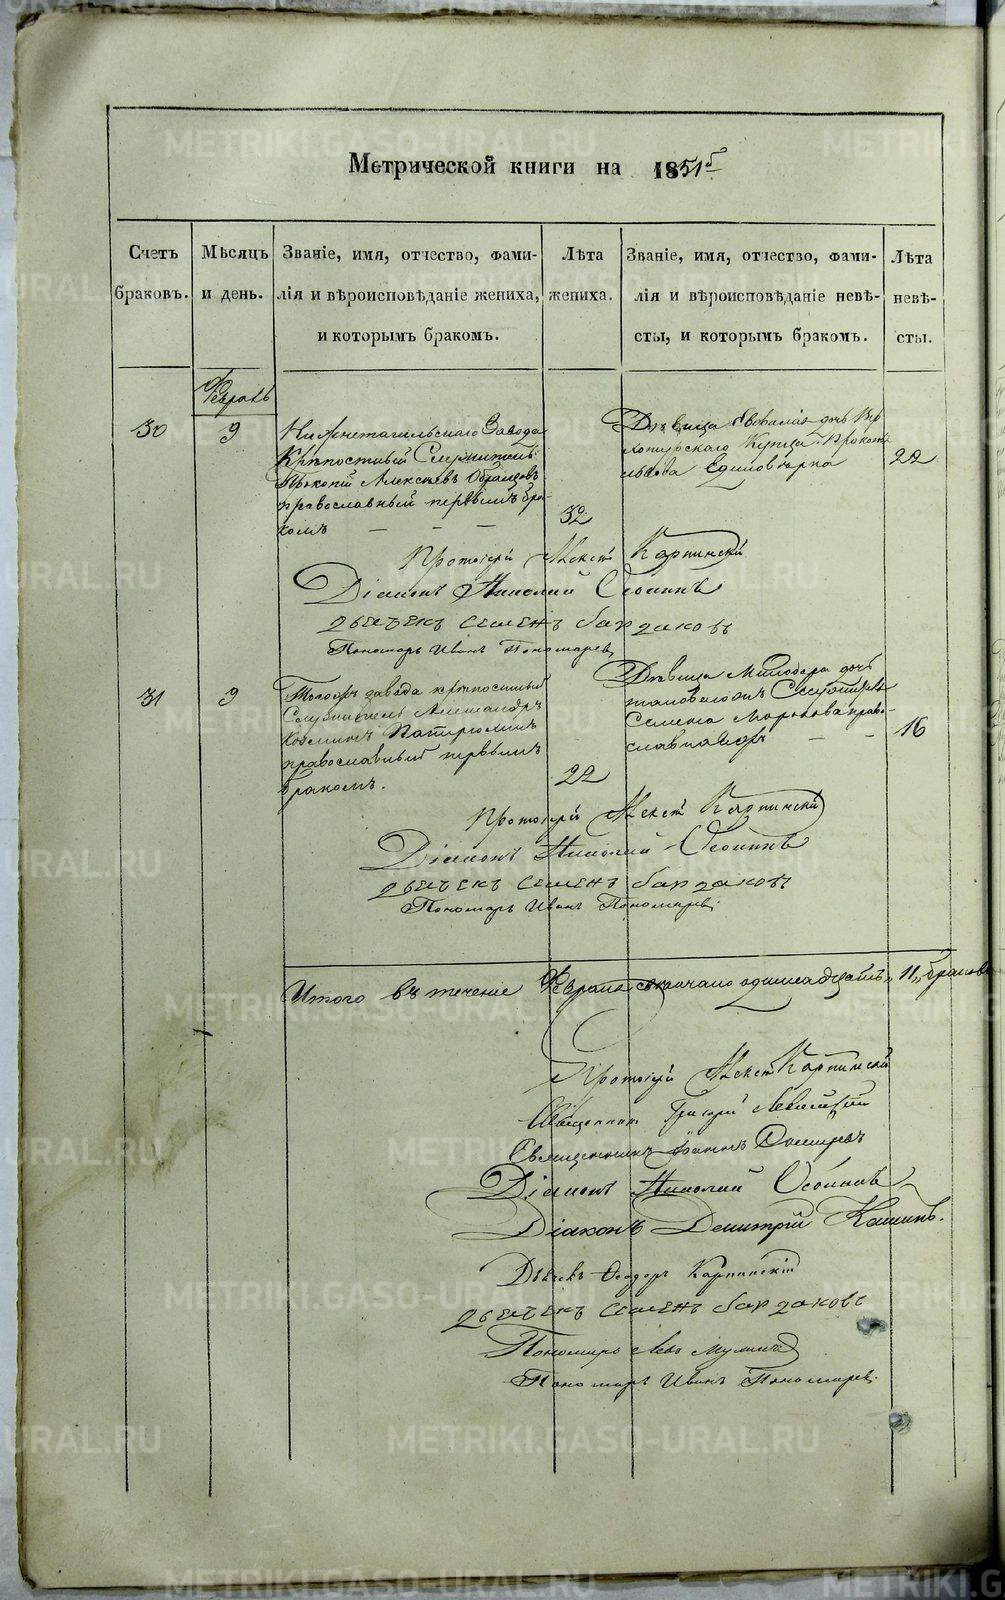 Метрической книги на 1851й
Счетъ браковъ.
Мѣсяцъ и день.
Званіе, имя, отчество, фами-
лія и вѣроисповѣданіе жениха,
и которымъ бракомъ.
Лѣта жениха.
Званіе, имя, отчество, фами-
лія и вѣроисповѣданіе невѣ-
сты, и которымъ бракомъ.
Лѣта невѣ-
сты.
Февраль
30
9
Нижнетагильскаго Завода
Крѣпостный Служитель
Прокопій Алексѣевъ Образцовъ
православный первымъ бра-
комъ
32
Дѣвица дочь Вер
хотурскаго Купца
Единовѣрка
22
Протоіерей Алексѣй Карпинскій
Діаконъ Николай Осонинъ
дьечекъ семенъ бардаковъ
Пономарь Иванъ Пономаревъ
31
9
Тогожъ завода крѣпостный
Служитель Александръ
православный первымъ
бракомъ.
22
Дѣвица Милодора дочь
Служителя
Семена Маркова право-
славная
16
Протоіерей Алексѣй Карпинскій
Діаконъ Николай Осонинъ
дьечекъ семенъ бардаковъ
Пономарь Иванъ Пономаревъ
Итого въ теченіе Февраля одинадцать „11„ браковъ
Протоіерей Алексѣй Карпинскій
Священникъ Григорій Левицкій
Священникъ
Діаконъ Николай Осонинъ
Діаконъ Димитрій Кашинъ.
Дьячекъ Ѳеодоръ Карпинскій
дьечекъ семенъ бардаковъ
Пономарь Левъ
Пономарь Иванъ Пономаревъ
METRIKI.GASO-URAL.RU